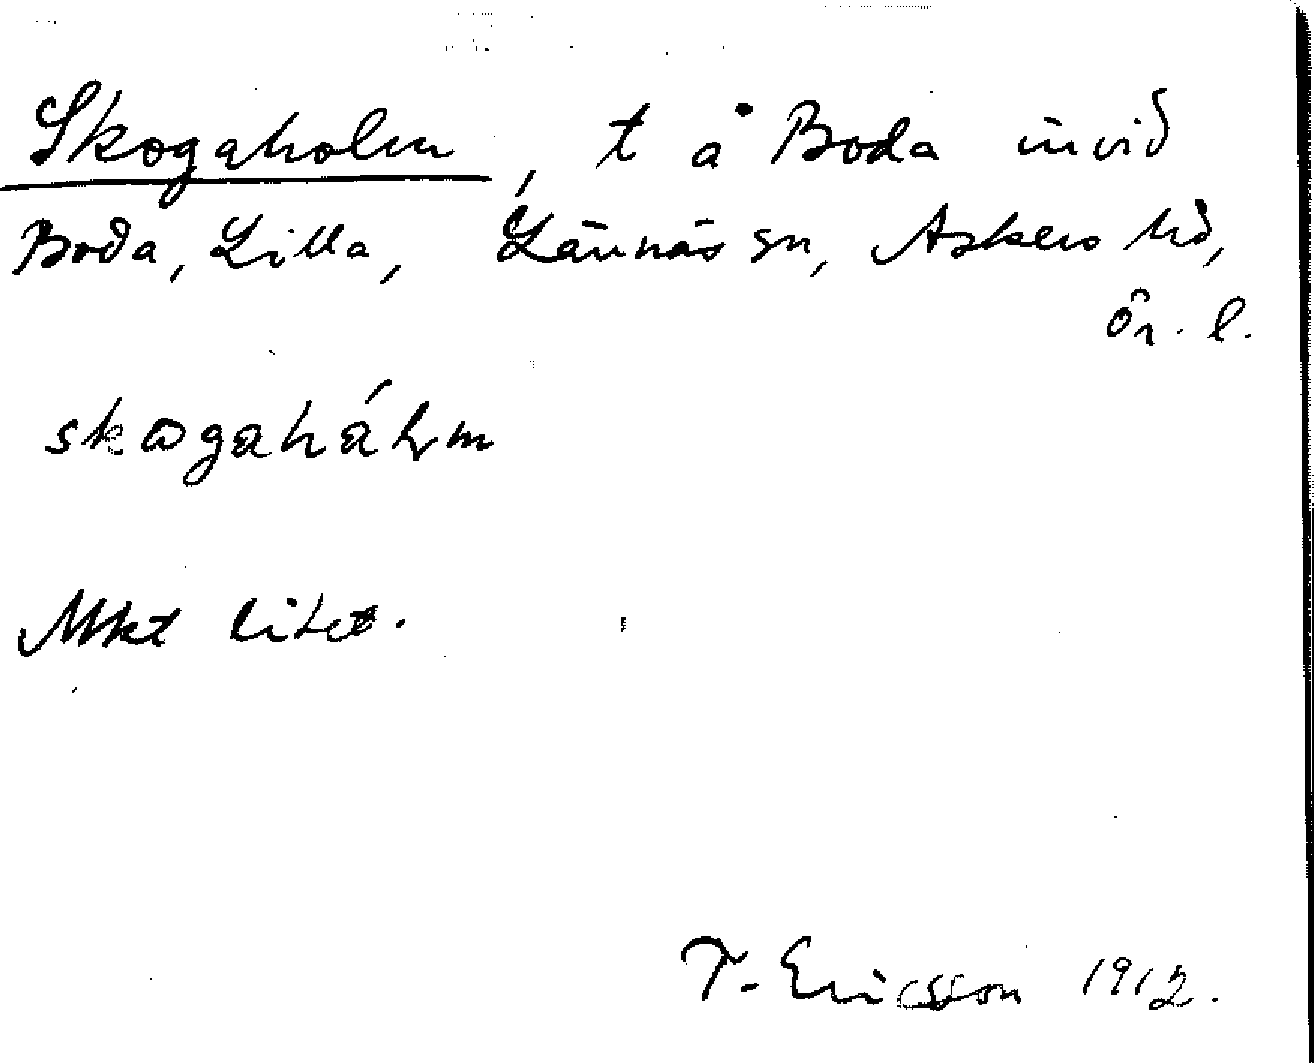 Skogaholm, t å Boda invid
Boda, Lilla, Lännäs sn, Askers hd,
Ör. l.
skogahá m
Mkt litet.
T. Ericsson 1912.